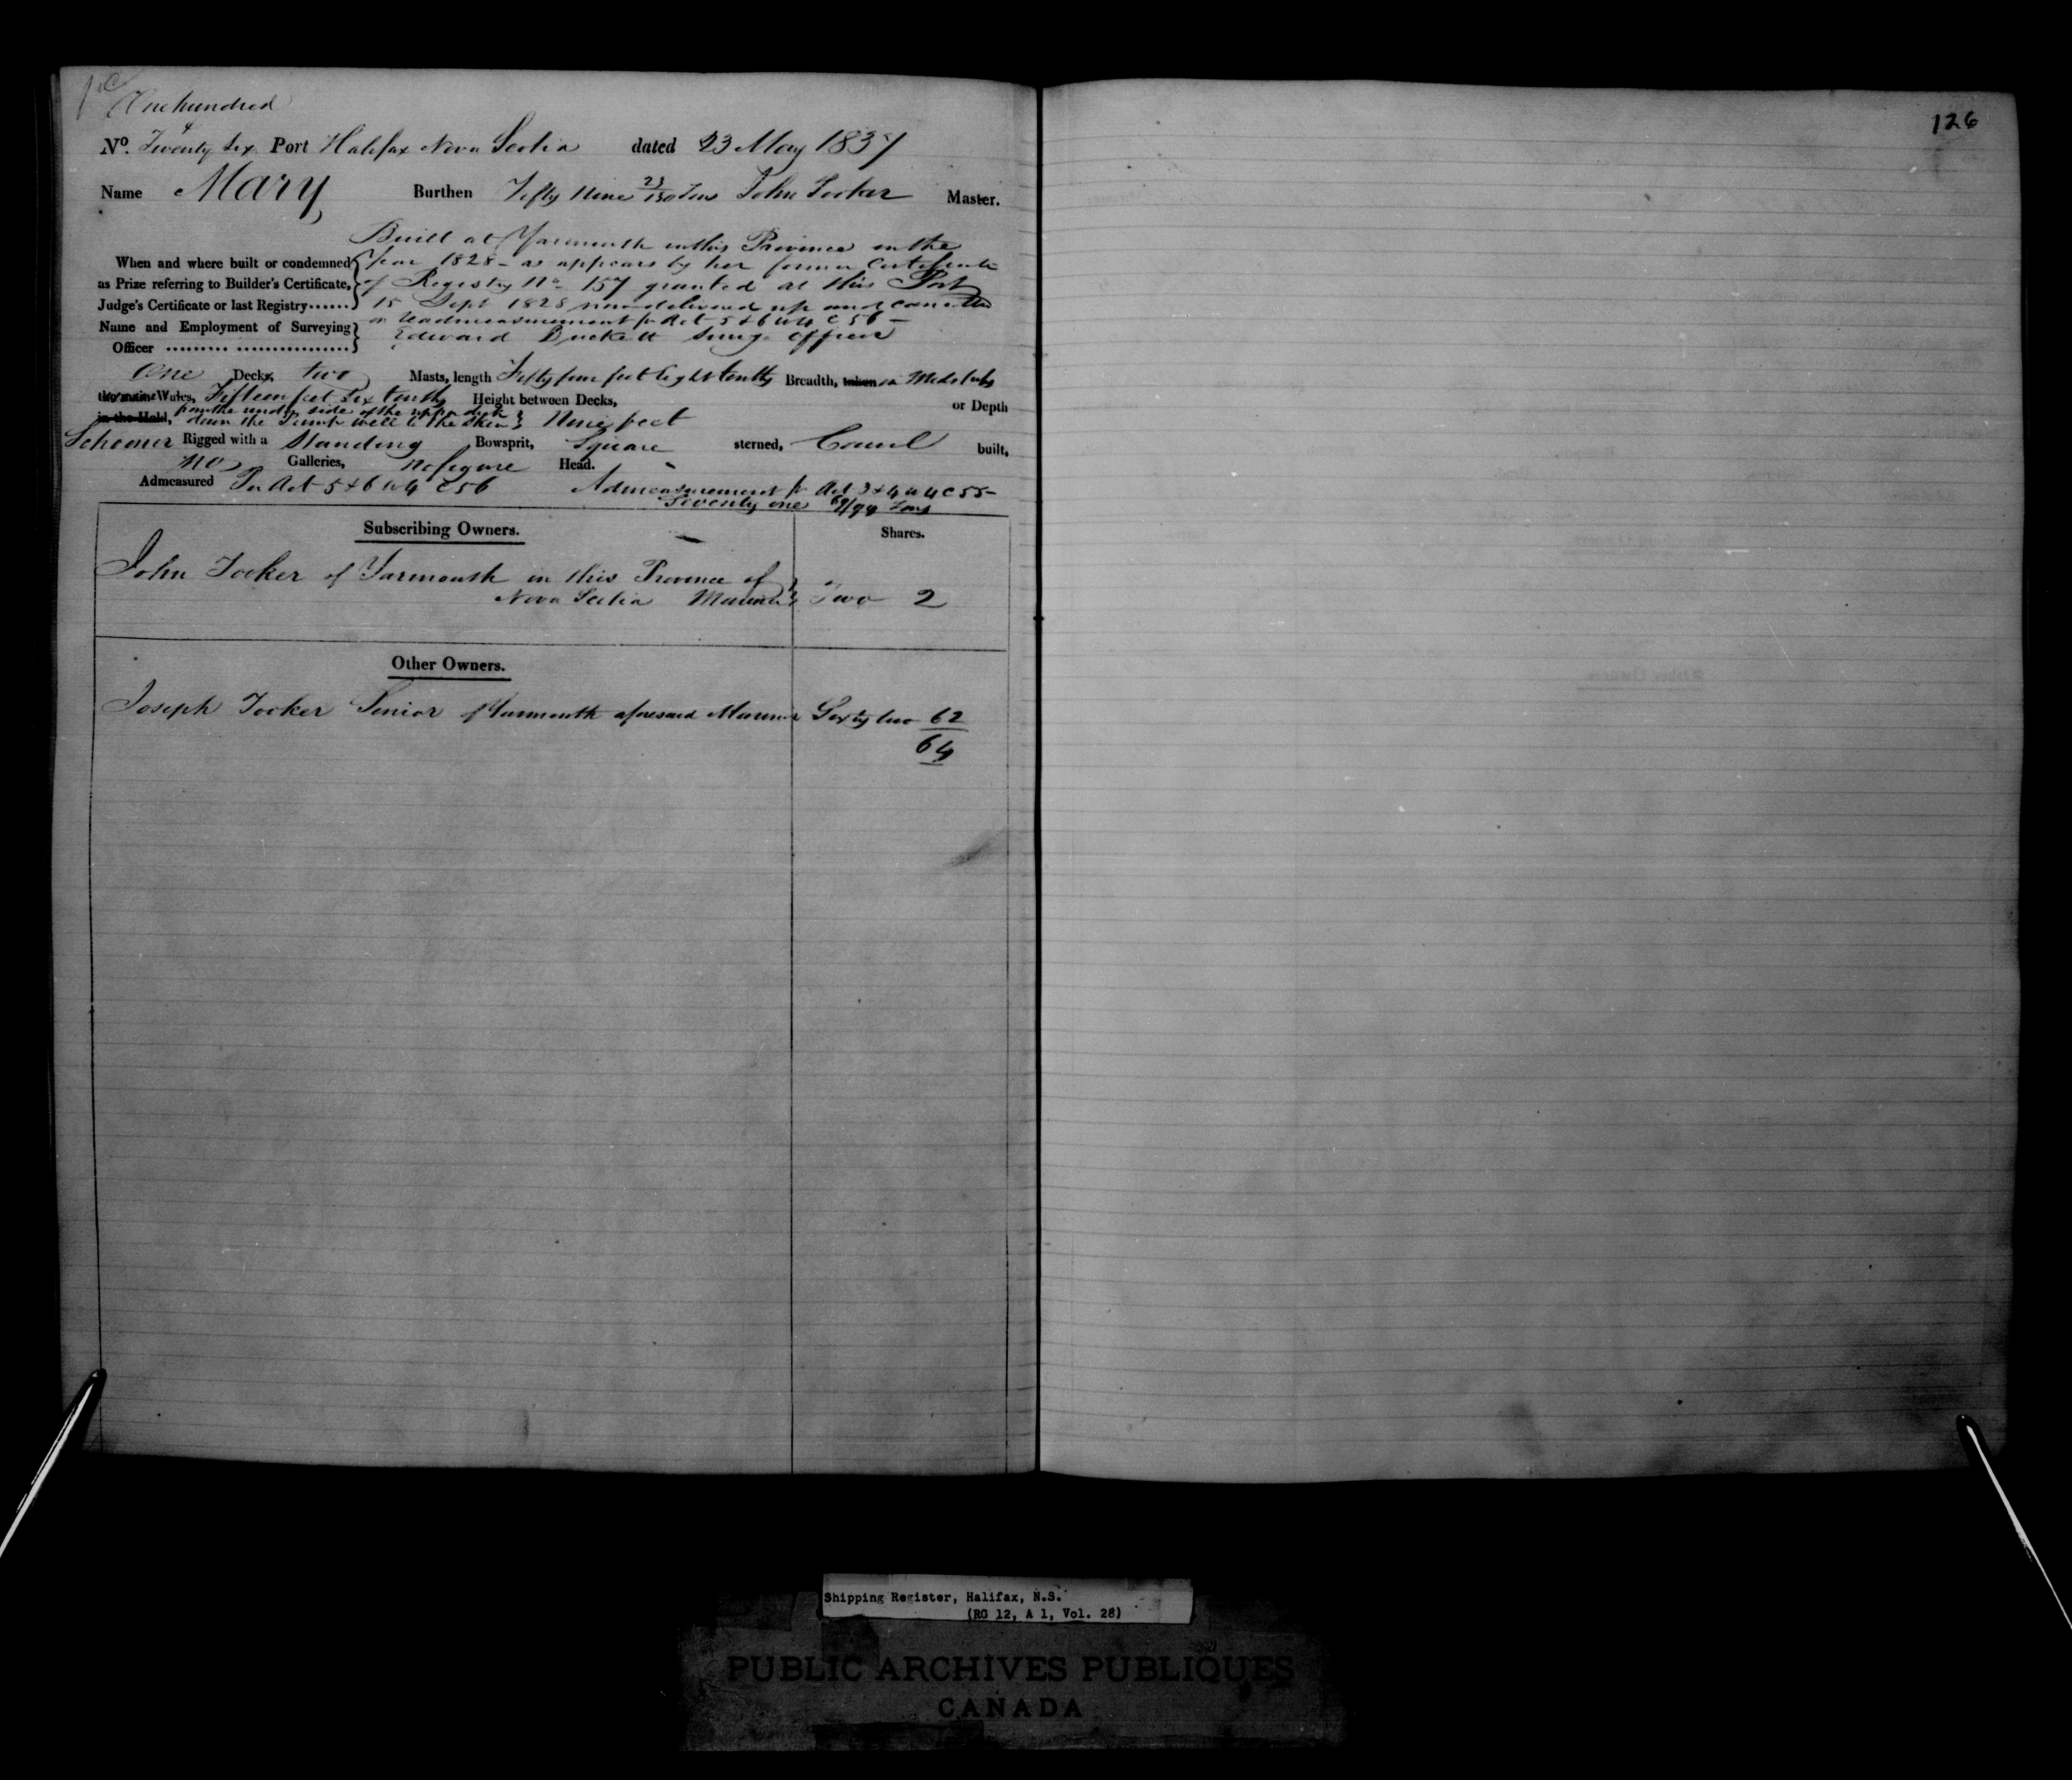 One hundred
&
No. Twenty Six Port Halifax Nova Scotia dated 23 May 1837
Name Mary Burthen Fifty Nine 23/130 Tons John Tooker Master.
Built at Yarmouth in this Province in the
When and where built or condemned Year 1828 - as appears by her former Certificate
as Prize referring to Builder's Certificate, of Registry No 157 granted at this Port
Judge's Certificate or last Registry...... 15 Sept 1828 now delivered up and cancelled
on Readmeasurement pr Act 5 & 6 W 4 C 56 -
Name and Employment of Surveying Edward Duckett Survg. Officer
Officer ......... ................
One Decks, two Masts, length Fifty four feet Eight tenths Breadth, taken in Midships
the main Wales, Fifteen feet Six tenths Height between Decks, or Depth
in the Hold, from the under side of the upper deck
down the Pump well to the Skin Nine feet
Schooner Rigged with a Standing Bowsprit, Square sterned, Carvel built,
no Galleries, no figure Head.
Admeasured Per Act 5 & 6 W 4 C 56 Admeasurement pr Act 3 & 4 W 4 C 55 -
Seventy one 69/94 Tons
Subscribing Owners. Shares.
John Tooker of Yarmouth in this Province of
Nova Scotia Mariner Two 2
Other Owners.
Joseph Tooker Senior of Yarmouth aforesaid Mariner Sixty two 62
64
126
Shipping Register, Halifax, N.S.
(RG 12, A 1, Vol. 28)
PUBLIC ARCHIVES PUBLIQUES
CANADA